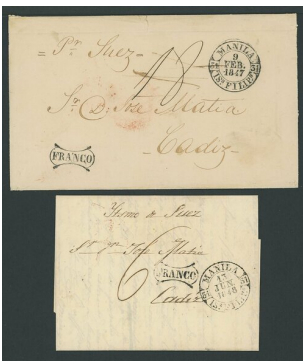 = Pr. Suez -
MANILA
9
FEB.
1847
ISs. FILIPs.
Sr. Dn. José Matia
Cadiz -
FRANCO
Ystmo de Suez
Sr. Dn. José Matia
6
FRANCO
Cadiz
MANILA
13
JUN.
1848
ISs. FILIPs.